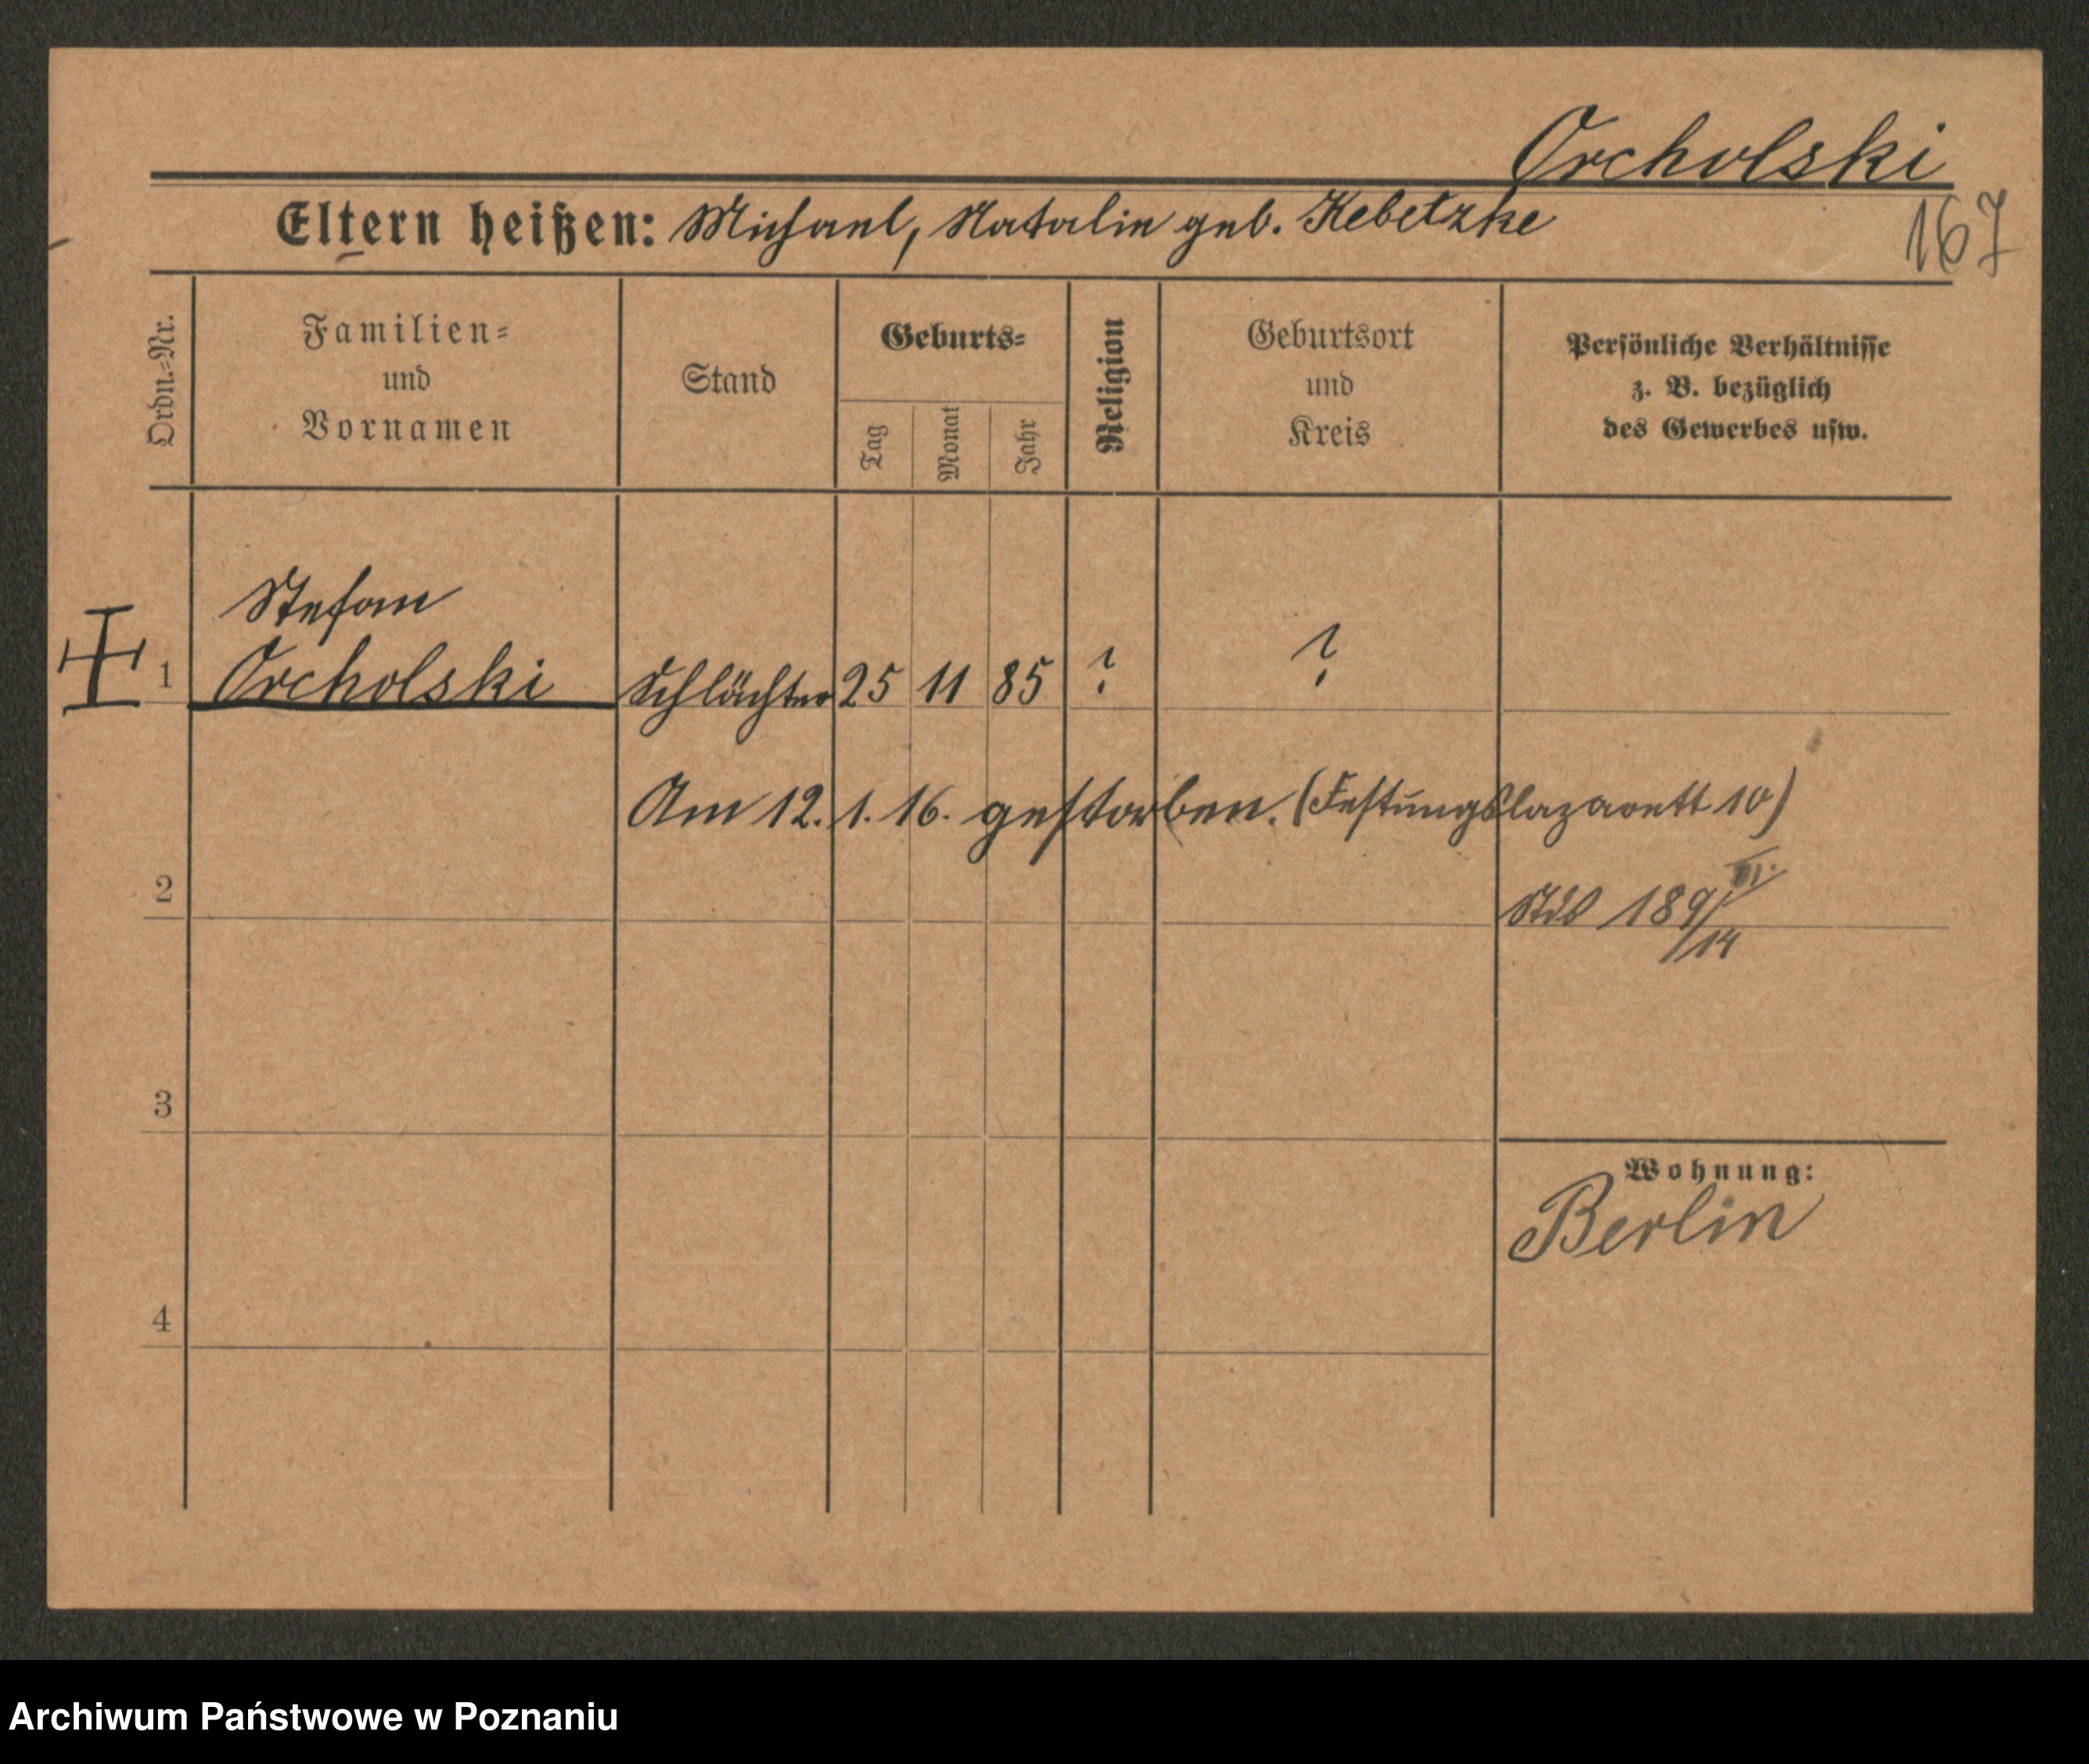 Orcholski
Eltern heißen: Michael, Natalie geb. Kebetzke
167
Ordn.-Nr.
Familien-
und
Vornamen
Stand
Geburts-
Tag
Monat
Jahr
Religion
Geburtsort
und
Kreis
Persönliche Verhältnisse
z. B. bezüglich
des Gewerbes usw.
Stefan
1 Orcholski Schlächter 25 11 85 ? ?
Am 12. 1. 16. gestorben. (Festungslazarett 10)
2
189/14
3
Wohnung:
Berlin
4
Archiwum Państwowe w Poznaniu